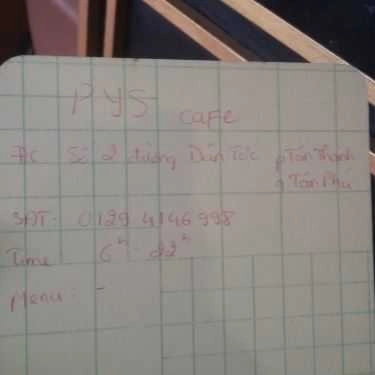 PYS cafe
ĐC Số 2 đường Dân Tộc P Tân Thành
Q Tân Phú
SĐT: 0129 4146 998
Time: 6h - 22h
Menu: -